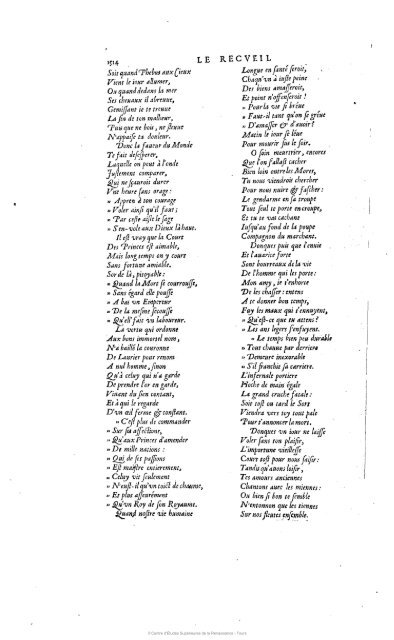 1514 LE RECVEIL
Soit quand Phebus aux Cieux
Vient le iour allumer,
Ou quand dedans la mer
Ses cheuaux il abreuue,
Gemissant ie te trouue
La soif de ton malheur,
Puis que ne bois, ne
N'appaise ta douleur.
Donc la faueur du Monde
Te fait desesperer,
Laquelle on peut à l'onde
Justement comparer,
Qui ne sçauroit durer
Vne heure sans orage:
» Appren à ton courage
» Voler ainsi qu'il faut;
» Par ceste aisle le sage
» S'en-vole aux Dieux là haut.
Il est vray que la Court
Des Princes est aimable,
Mais long temps on y court
Sans fortune amiable.
Sor de là, pitoyable:
» Quand la Mort se courrouffe,
» Sans égard elle pousse
» A bas vn Empereur
» De la mesme secousse
» Qu'ell' fait vn laboureur.
La vertu qui ordonne
Aux bons immortel nom,
N'a baillé la couronne
De Laurier pour renom
A nul homme, sinon
Qu'à celuy qui n'a garde
De prendre l'or en garde,
Vinant du sien contant,
Et à qui le regarde
D'vn œil ferme & constant.
» C'est plus de commander
» Sur sa affections,
» Qu'aux Princes d'amender
» De mille nations:
» Qui de ses passions
» Est maistre entierement,
» Celuy vit seulement
» N'eust-il qu'vn toict de chaume,
» Et plus asseurément
» Qu'vn Roy de son Royaume.
Quand nostre vie humaine
Longue en santé seroit,
Chaqu'vn à iuste peine
Des biens amasseroit,
Et point n'offenseroit!
» Pour la vie si bréue
» Faut-il tant qu'on se gréue
» D'amasser & d'auoir?
» Matin le iour se leue
Pour mourir sus le soir.
O soin meurtrier, encores
Que l'on s'allast cacher
Bien loin entre les Mores,
Tu nous viendrois chercher
Pour nous nuire & fascher:
Le gendarme en sa troupe
Tout seul te porte en croupe,
Et tu te vas cachant
Jusqu'au fond de la poupe
Compagnon du marchant.
Donques puis que l'enuie
Et l'auarice forte
Sont bourreaux de la vie
De l'homme qui les porte:
Mon amy, ie t'enhorte
De les chasser: entens
A te donner bon temps,
Fuy les maux qui t'ennuyent,
» Qu'est-ce que tu attens?
» Les ans legers s'enfuyent.
» Le temps bien peu durable
» Tout chauue par derriere
» Demeure inexorable
» S'il franchit sa carriere.
L'infernale portiere
Hoche de main égale
La grand cruche fatale:
Soit tost ou tard le Sort
Viendra vers toy tout pale
Pour t'annoncer la mort.
Donques vn iour ne laisse
Voler sans ton plaisir,
L'importune vieillesse
Court tost pour nous saisir:
Tandis qu'auons loisir,
Tes amours anciennes
Chantons auec les miennes:
Ou bien si bon te semble
N'entonnon que les tiennes
Sur nos fleutes ensemble.
© Centre d'Études Supérieures de la Renaissance - Tours